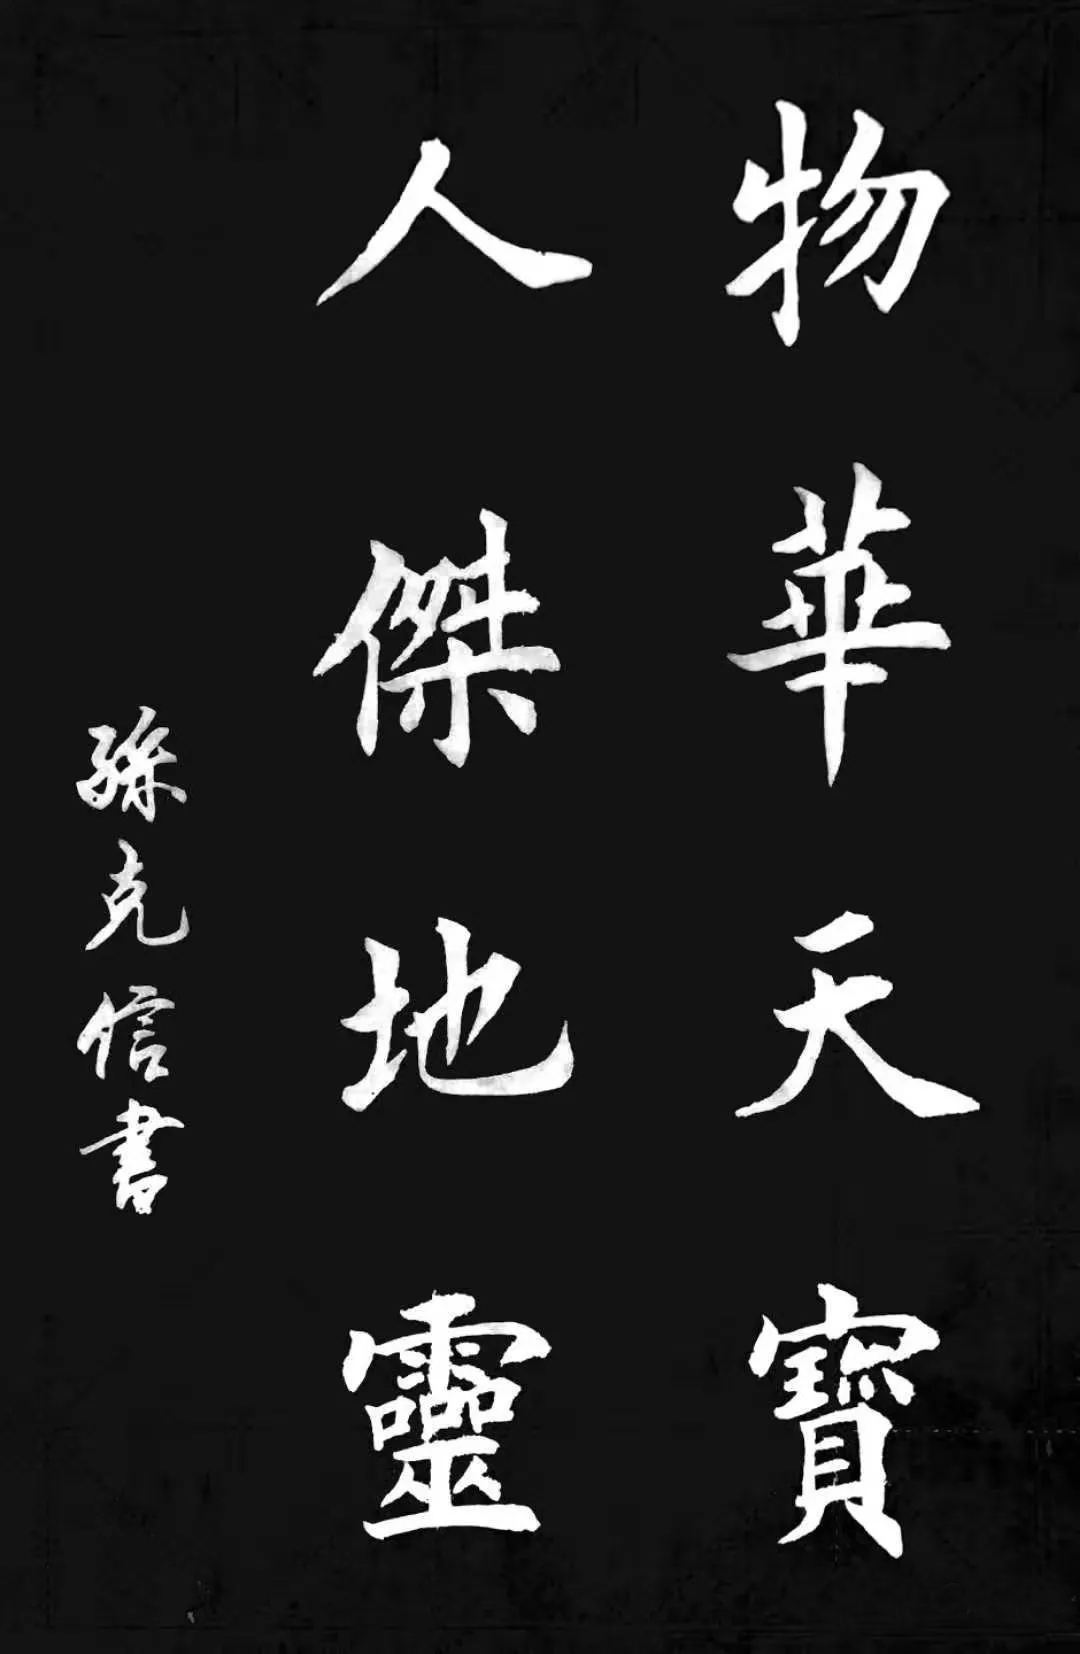 物華天寶
人傑地靈
孫克信書